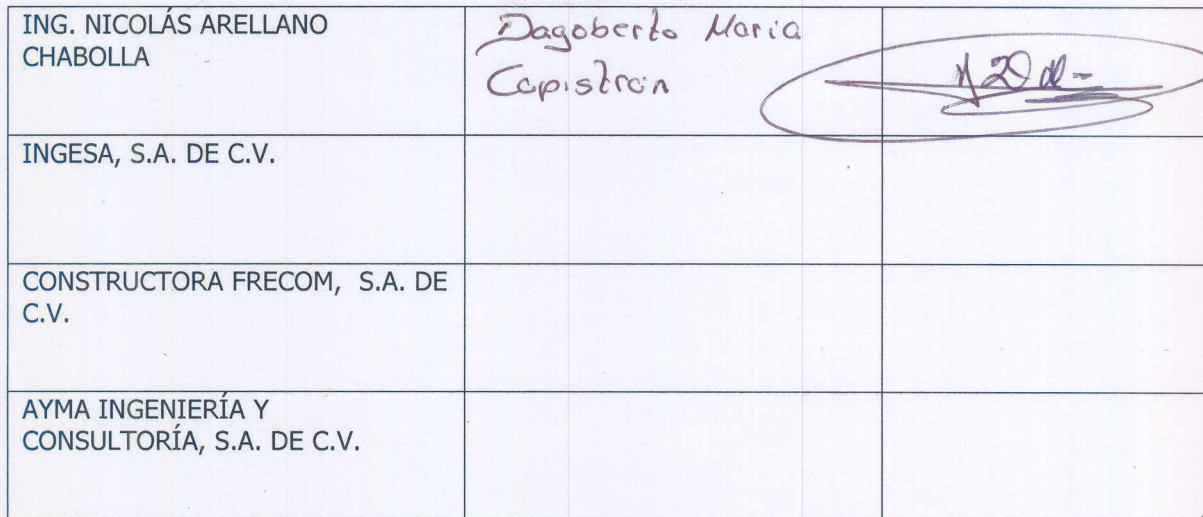 ING. NICOLÁS ARELLANO
CHABOLLA
Dagoberto Maria
Capistran
INGESA, S.A. DE C.V.
CONSTRUCTORA FRECOM, S.A. DE
C.V.
AYMA INGENIERÍA Y
CONSULTORÍA, S.A. DE C.V.